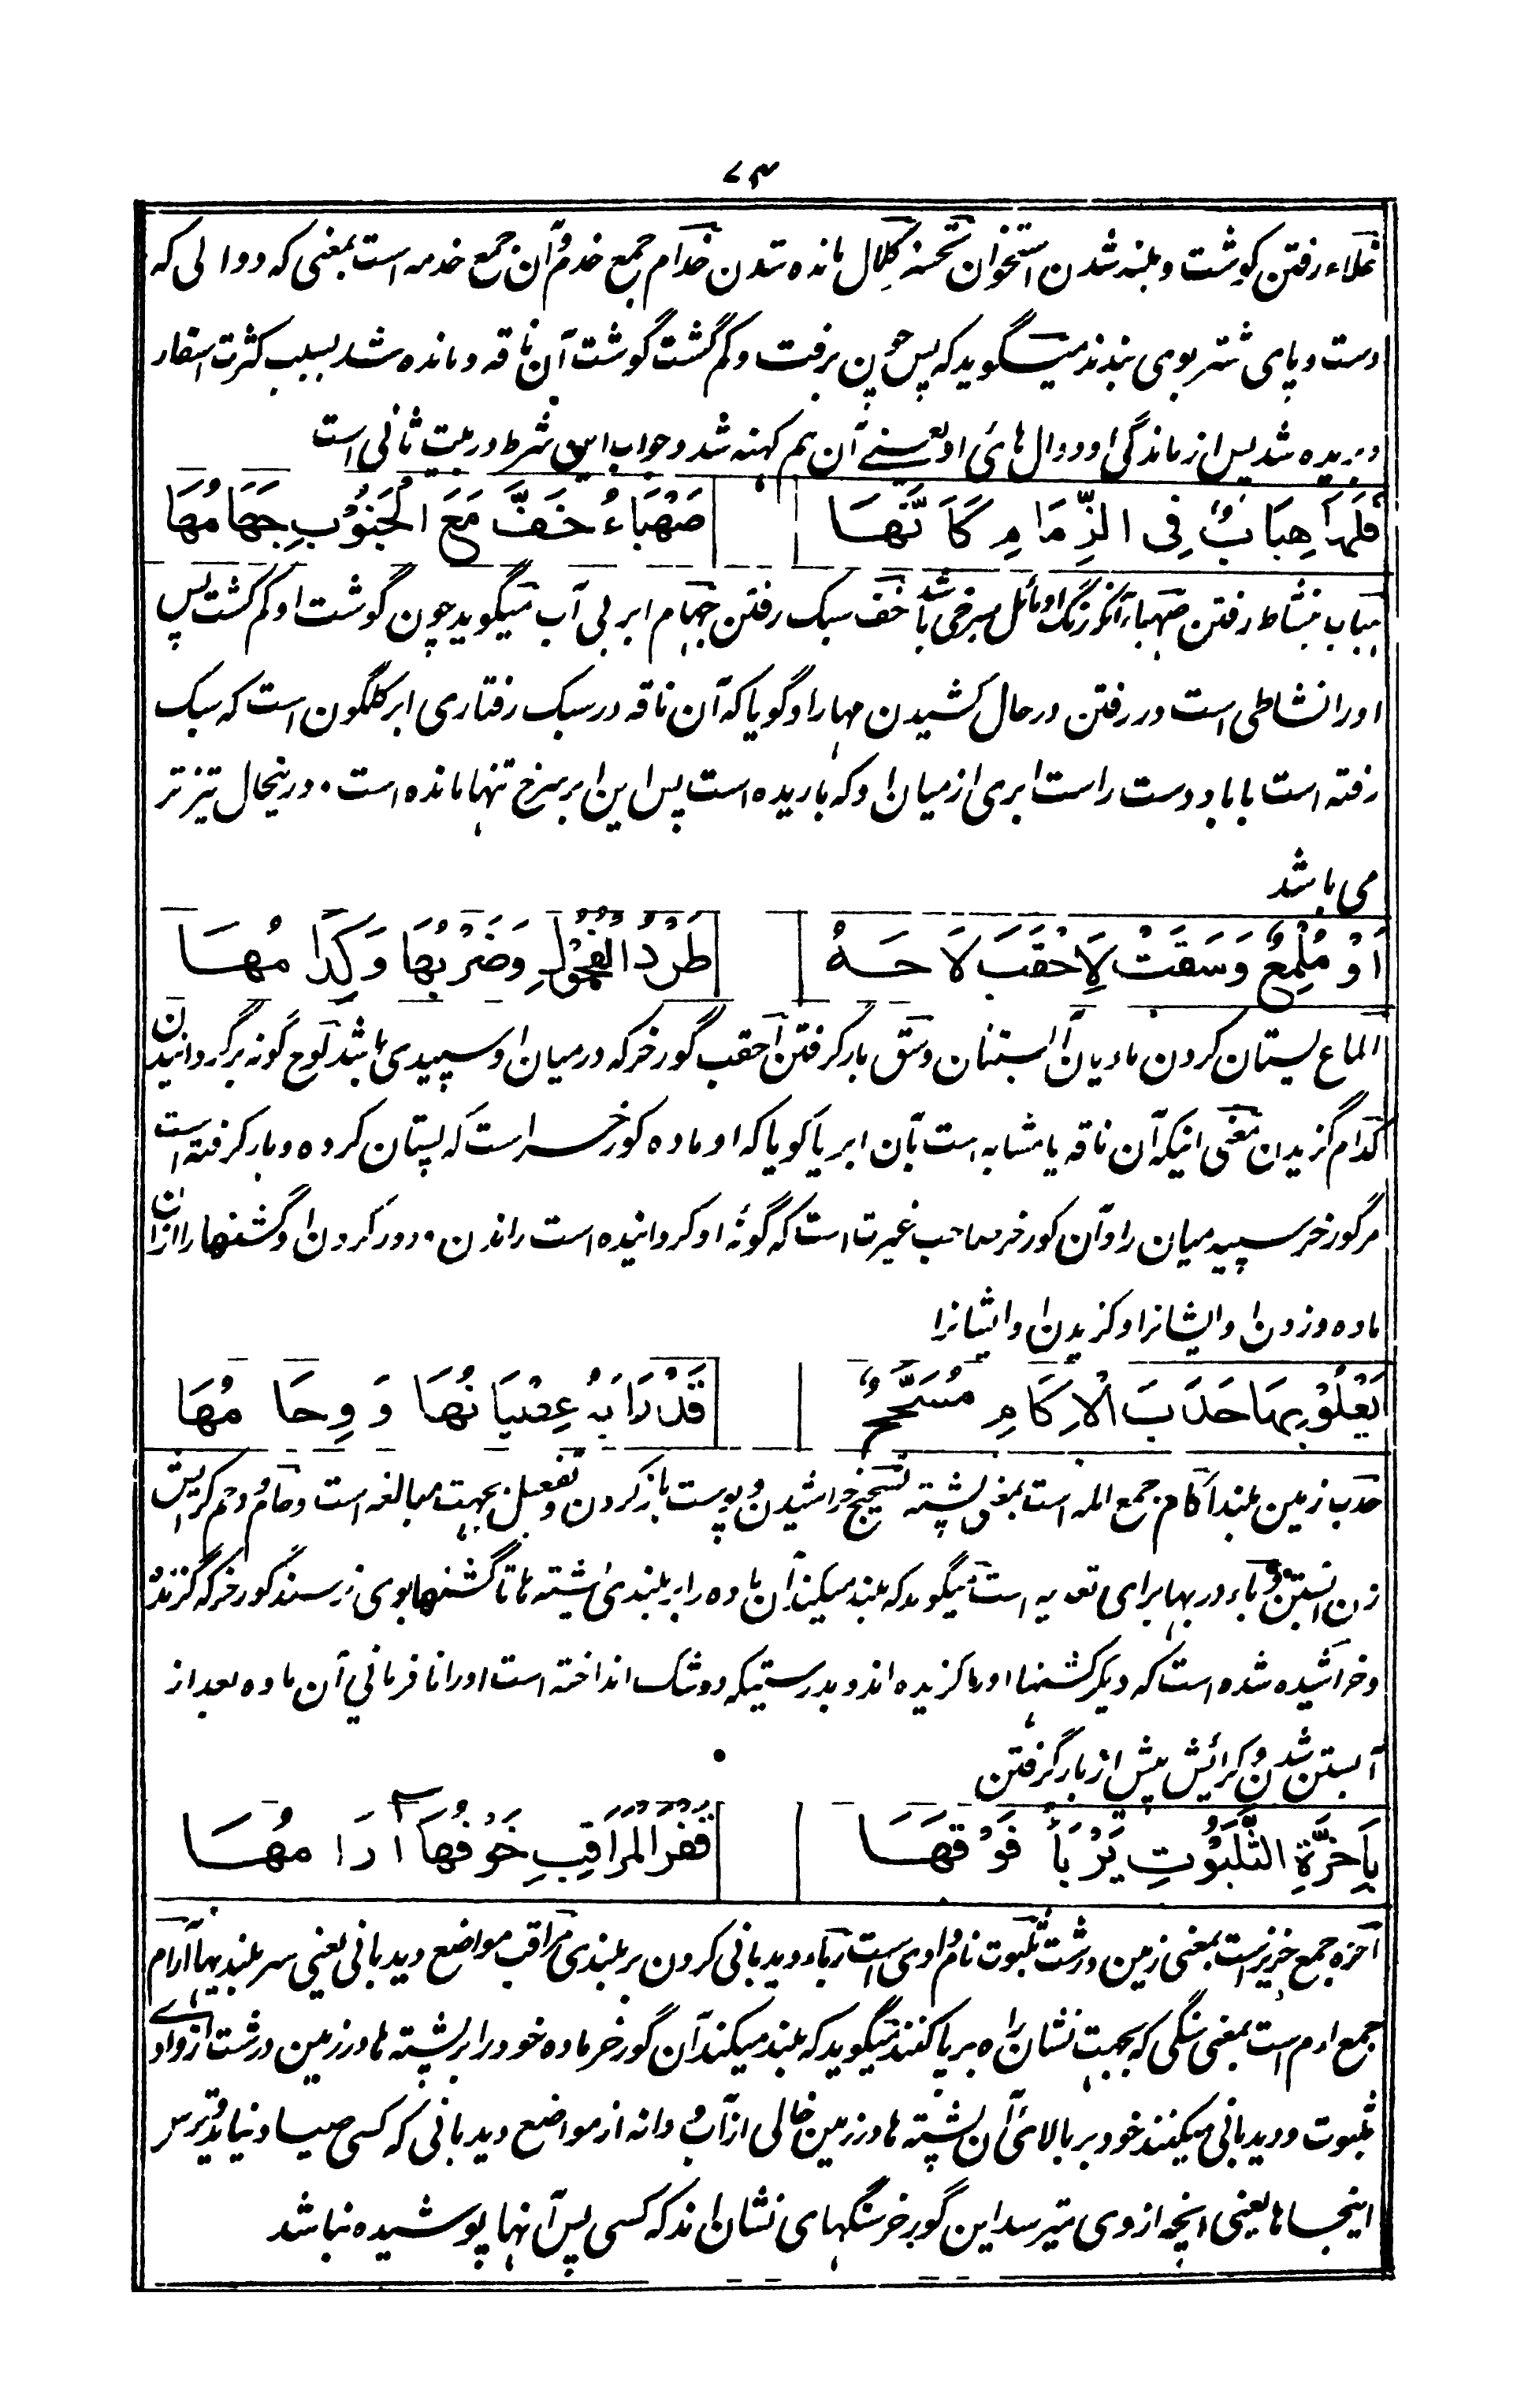 ۷۳
غلاء رفتن گوشت و بلند شدن استخوان تحسر کلال مانده شدن خدام جمع خدم و آن جمع خدمه است بمعنی که دوالی که
دست و پای شتر بوی بندند میگوید که پس چون برفت و کم گشت گوشت آن ناقه و مانده شد بسبب کثرت اسفار
و بریده شد پس از ماندگی او دوال های او یعنے آن هم کهنه شد و جواب این شرط در بیت ثانی است
فَلَهَا هِبَابٌ فِى الزِّمَامِ كَاَنَّهَا صَهْبَاءُ خَفَّ مَعَ الْجَنُوْبِ جَهَامُهَا
هباب بنشاط رفتن صهباء آنکه رنگ او مائل بسرخی باشد خف سبک رفتن جهام ابر بی آب میگوید چون گوشت او کم گشت پس
اورا نشاطی است در رفتن در حال کشیدن مهار او گویا که آن ناقه در سبک رفتاری ابر کلگون است که سبک
رفته است با باد دست راست ابری از میان او که باریده است پس این ابر سرخ تنها مانده است ۰ درینحال تیزتر
می باشد
اَوْ مُلْمِعٌ وَسَقَتْ لِاَحْقَبَ لَاحَـهُ طَرْدُ الْفُحُوْلِ وَضَرْبُهَا وَكِدَامُهَا
الماع پستان کردن مادیان آبستنان وسق بار گرفتن احقب گورخر که در میان او سپیدی باشد لوح گونه برگردانیدن
کدام گزیدن معنی اینکه آن ناقه یا مشابه است بآن ابر یا گویا که او ماده کورخر است که پستان کرده و بار گرفته است
مر گورخر سپید میان را و آن کورخر صاحب غیرت است که گونهٔ او کردانیده است راندن ۰ دور کردن او گشنها را ازان
ماده و زدن او ایشانرا و گزیدن او ایشانرا
يَعْلُوْ بِهَا حَدَبَ الْاِكَامِ مُسَحَّجٌ قَدْ رَابَهُ عِصْيَانُهَا وَ وِحَامُهَا
حدب زمین بلند اکام جمع اکمه است بمعنی پشته تسحیج خراشیدن و پوست باز کردن و تفعیل بجهت مبالغه است وحام و حم کرایش
زن آبستن و باء در بها برای تعدیه است میگوید که بلند میکند آن ماده را بر بلندی پشته ها تا گشنها بوی نرسند گورخر که گزنده
و خراشیده شده است که دیگر گشنها اورا گزیده اند و بدرستیکه در شک انداخته است اورا نافرمانی آن ماده بعد از
آبستن شدن و کرائیش پیش از بار گرفتن
بِاَحِزَّةِ الثَّلَبُوْتِ يَرْبَأُ فَوْقَهَـا قَفْرَ الْمَرَاقِبِ خَوْفُهَا آرَامُهَـا
احزه جمع حزیز است بمعنی زمین درشت ثلبوت نام وادی است رباء دیدبانی کردن بر بلندی مراقب مواضع دیدبانی یعنی سر بلندیها آرام
جمع ارم است بمعنی سنگی که بجهت نشان راه بر پا کنند میگوید که بلند میکند آن گورخر ماده خود را بر پشته ها در زمین درشت از وادے
ثلبوت و دیدبانی میکنند خود بر بالائ آن پشته ها در زمین خالی از آب و دانه از مواضع دیدبانی که کسی صیاد نیاید و ترس
اینجا ها یعنی آنچه از وی میترسد این گورخر سنگهای نشان اند که کسی پس آنها پوشیده نباشد